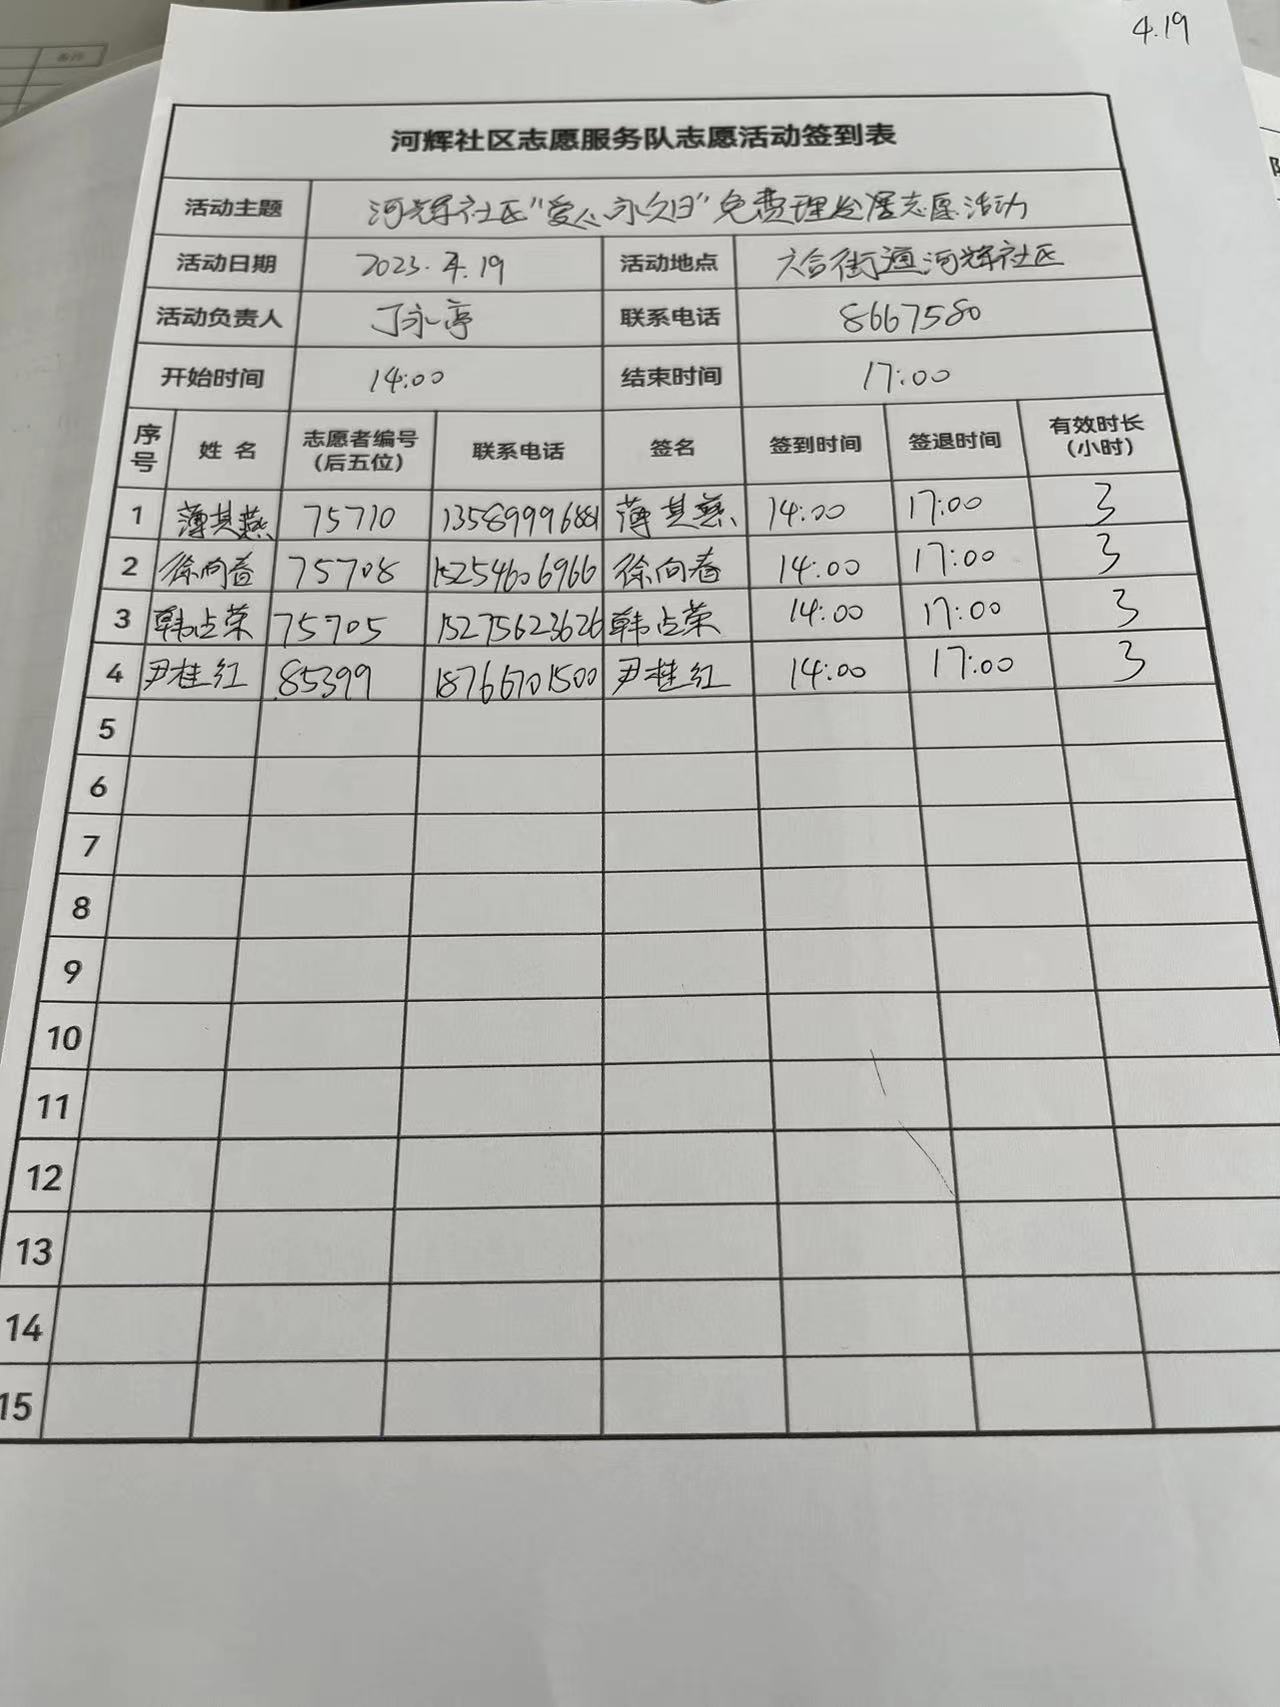 4.19
河辉社区志愿服务队志愿活动签到表
活动主题 河辉社区"爱心永久日"免费理发屋志愿活动
活动日期 2023.4.19 活动地点 六合街道河辉社区
活动负责人 丁永亭 联系电话 8667580
开始时间 14:00 结束时间 17:00
序号 姓名 志愿者编号(后五位) 联系电话 签名 签到时间 签退时间 有效时长(小时)
1 薄其燕 75710 13589996881 薄其燕 14:00 17:00 3
2 徐向春 75708 15254606966 徐向春 14:00 17:00 3
3 韩占荣 75705 15275623626 韩占荣 14:00 17:00 3
4 尹桂红 85399 18766701500 尹桂红 14:00 17:00 3
5
6
7
8
9
10
11
12
13
14
15